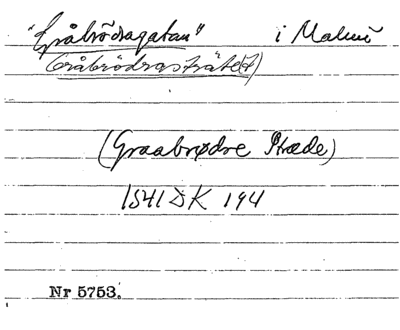 "Gråbrödragatan" i Malmö
Gråbrödrasträte(t)
(Graabrødre Stræde)
1541 DK 194
Nr 5753.